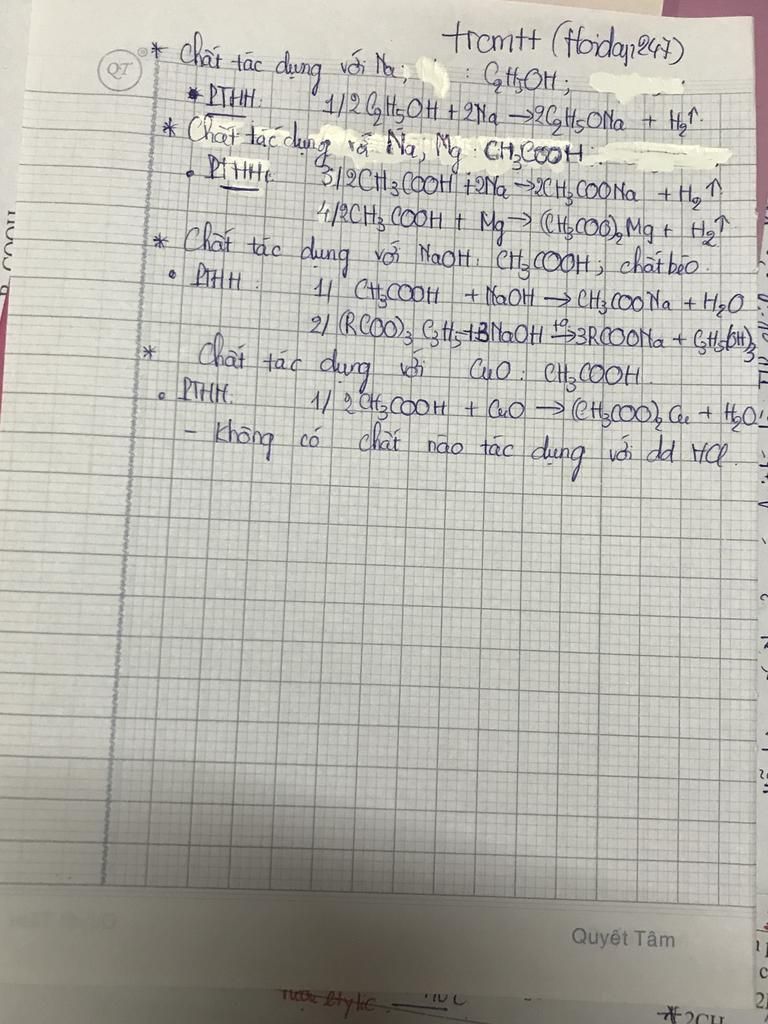 trcmtt (hoidap247)
QT
* Chất tác dụng với Na; : C₂H₅OH;
* PTHH: 1/ 2C₂H₅OH + 2Na → 2C₂H₅ONa + H₂↑.
* Chất tác dụng với Na, Mg: CH₃COOH:
• PTHH: 3/ 2CH₃COOH + 2Na → 2CH₃COONa + H₂↑
4/ 2CH₃COOH + Mg → (CH₃COO)₂Mg + H₂↑
* Chất tác dụng với NaOH: CH₃COOH; chất béo.
• PTHH: 1/ CH₃COOH + NaOH → CH₃COONa + H₂O
2/ (RCOO)₃C₃H₅ + 3NaOH t°→ 3RCOONa + C₃H₅(OH)₃
* Chất tác dụng với CuO: CH₃COOH.
• PTHH: 1/ 2CH₃COOH + CuO → (CH₃COO)₂Cu + H₂O.
- Không có chất nào tác dụng với dd HCl.
Quyết Tâm